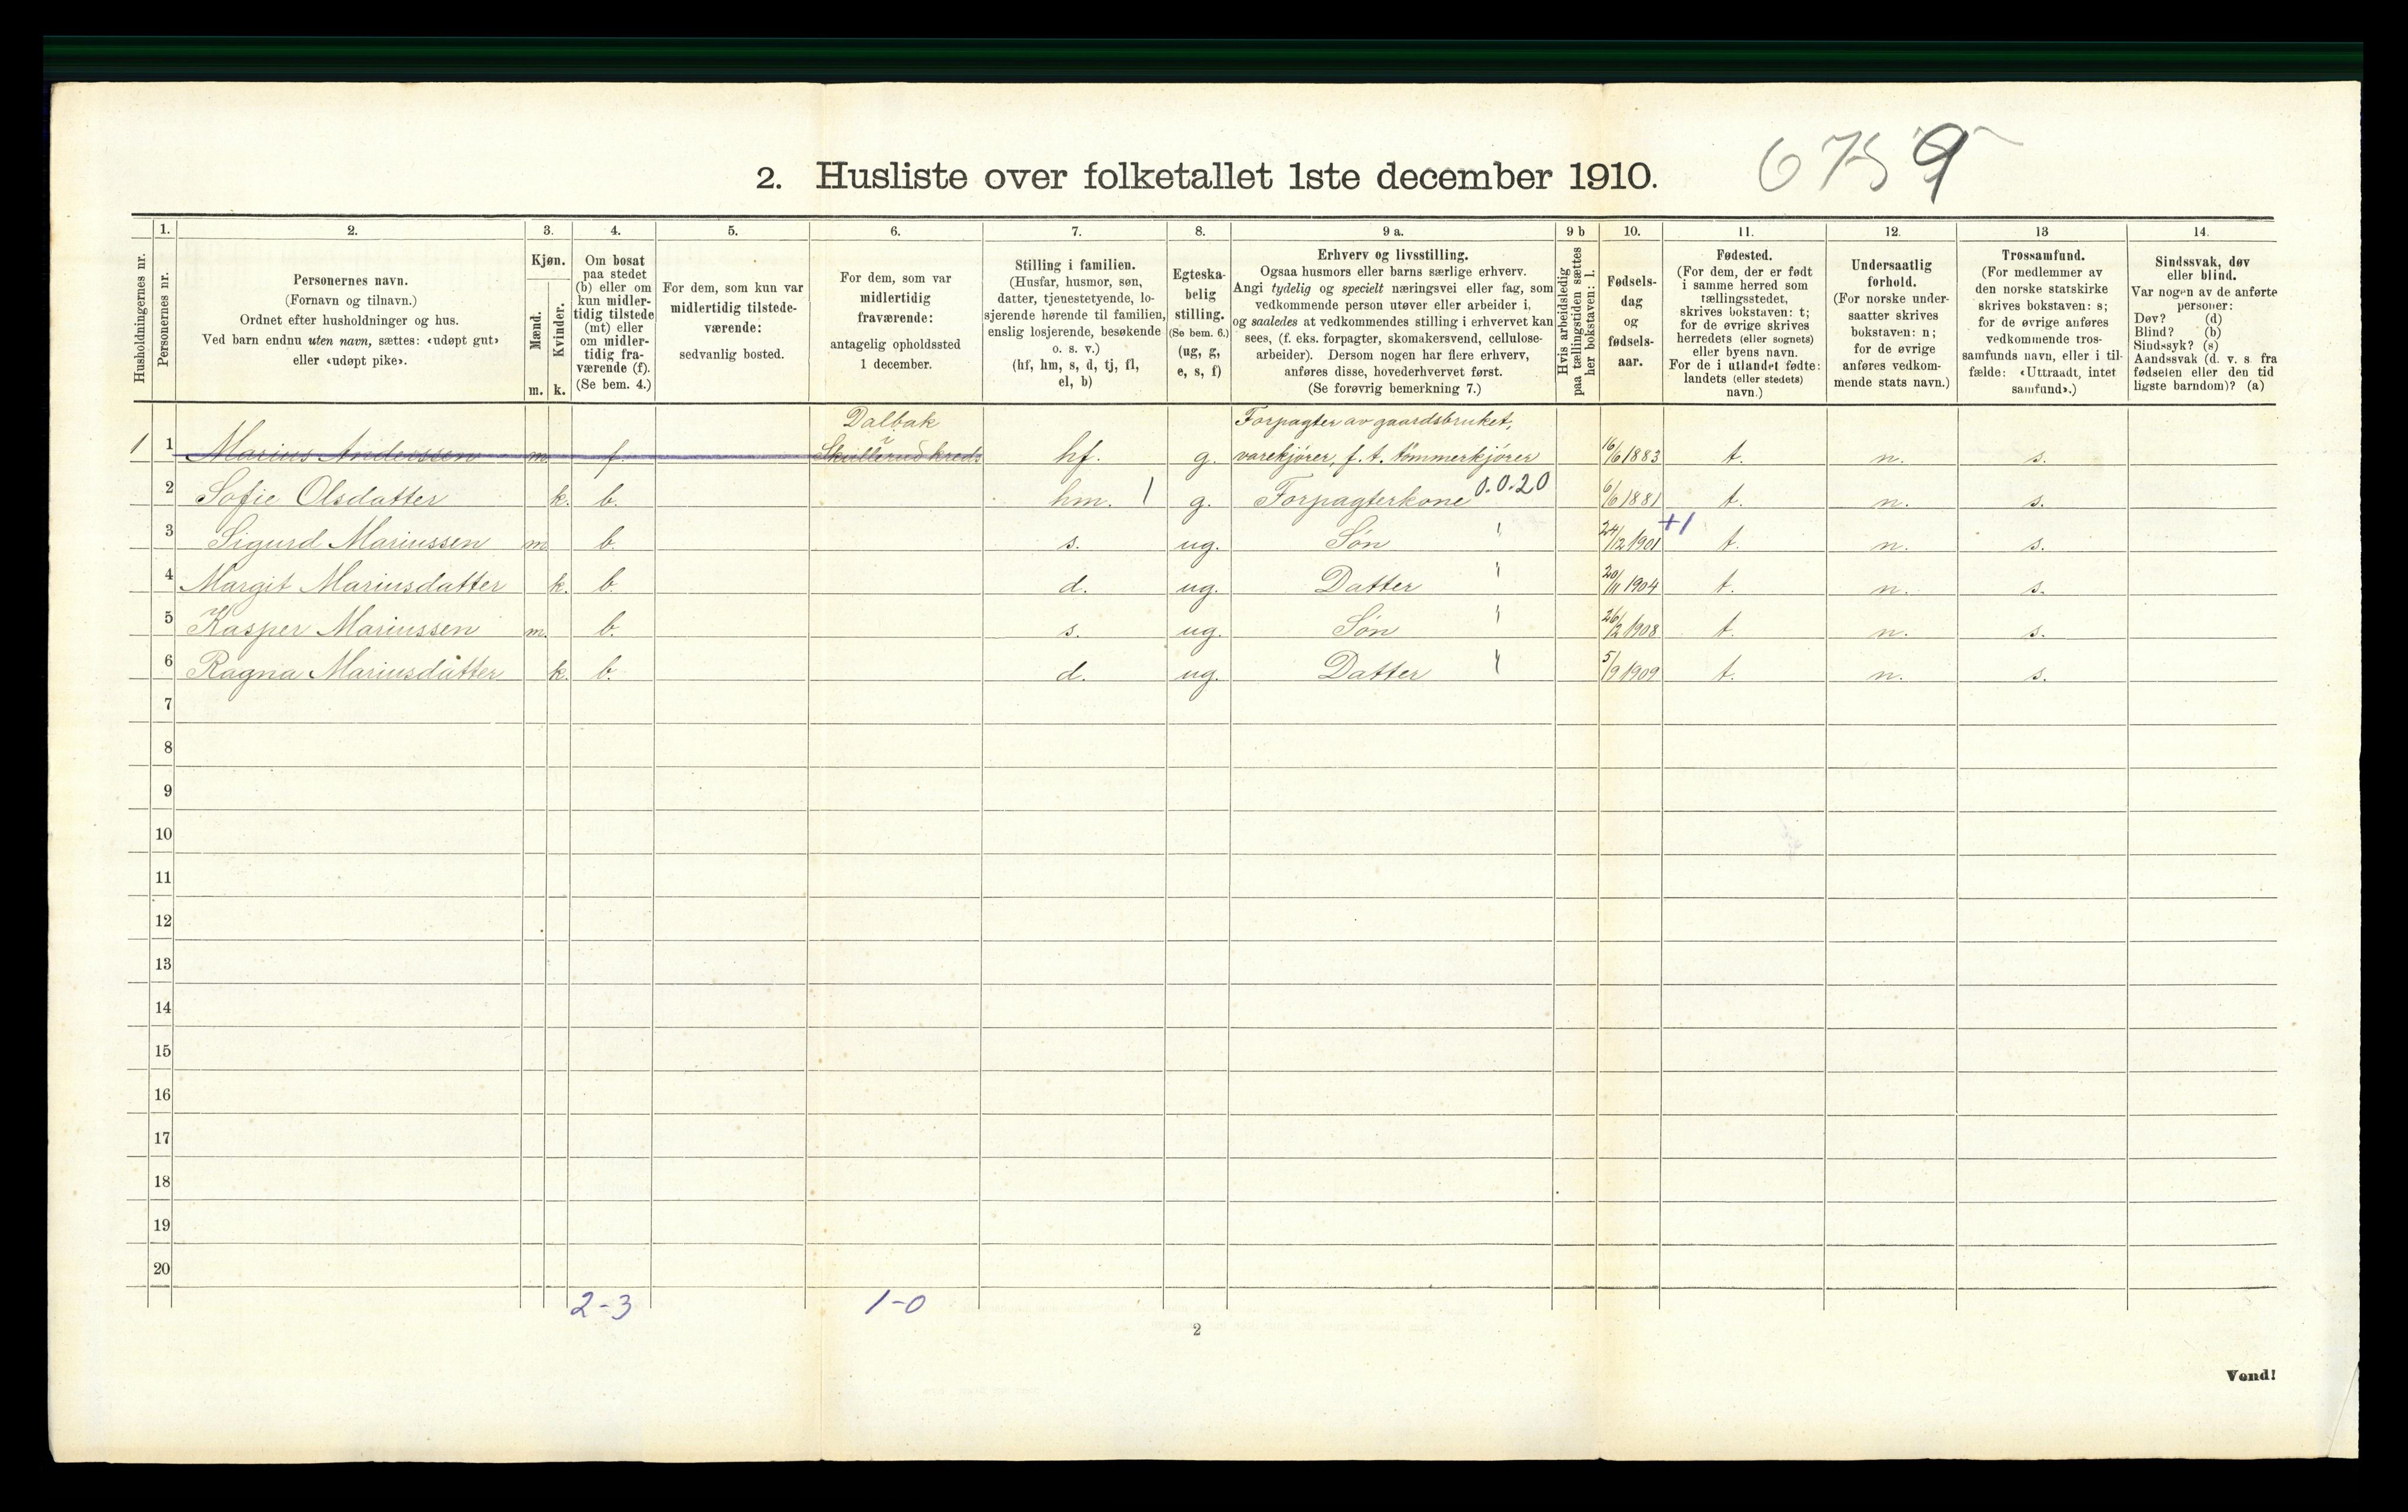 2. Husliste over folketallet 1ste december 1910.
1. 2. 3. 4. 5. 6. 7. 8. 9 a. 9 b 10. 11. 12. 13 14.
Husholdningernes nr.
Personernes nr.
Personernes navn.
(Fornavn og tilnavn.)
Ordnet efter husholdninger og hus.
Ved barn endnu uten navn, sættes: «udøpt gut»
eller «udøpt pike».
Kjøn.
Mænd.
Kvinder.
m. k.
Om bosat
paa stedet
(b) eller om
kun midler-
tidig tilstede
(mt) eller
om midler-
tidig fra-
værende (f).
(Se bem. 4.)
For dem, som kun var
midlertidig tilstede-
værende:
sedvanlig bosted.
For dem, som var
midlertidig
fraværende:
antagelig opholdssted
1 december.
Stilling i familien.
(Husfar, husmor, søn,
datter, tjenestetyende, lo-
sjerende hørende til familien,
enslig losjerende, besøkende
o. s. v.)
(hf, hm, s, d, tj, fl,
el, b)
Egteska-
belig
stilling.
(Se bem. 6.)
(ug, g,
e, s, f)
Erhverv og livsstilling.
Ogsaa husmors eller barns særlige erhverv.
Angi tydelig og specielt næringsvei eller fag, som
vedkommende person utøver eller arbeider i,
og saaledes at vedkommendes stilling i erhvervet kan
sees, (f. eks. forpagter, skomakersvend, cellulose-
arbeider). Dersom nogen har flere erhverv,
anføres disse, hovederhvervet først.
(Se forøvrig bemerkning 7.)
Hvis arbeidsledig
paa tællingstiden sættes
her bokstaven: l.
Fødsels-
dag
og
fødsels-
aar.
Fødested.
(For dem, der er født
i samme herred som
tællingsstedet,
skrives bokstaven: t;
for de øvrige skrives
herredets (eller sognets)
eller byens navn.
For de i utlandet fødte:
landets (eller stedets)
navn.)
Undersaatlig
forhold.
(For norske under-
saatter skrives
bokstaven: n;
for de øvrige
anføres vedkom-
mende stats navn.)
Trossamfund.
(For medlemmer av
den norske statskirke
skrives bokstaven: s;
for de øvrige anføres
vedkommende tros-
samfunds navn, eller i til-
fælde: «Uttraadt, intet
samfund».)
Sindssvak, døv
eller blind.
Var nogen av de anførte
personer:
Døv? (d)
Blind? (b)
Sindssyk? (s)
Aandssvak (d. v. s. fra
fødselen eller den tid
ligste barndom)? (a)
Dalbak Forpagter av gaardsbruket,
1 1 Marius Anderssen m. f. Skullerud kreds hf. g. varekjører, f. t. tømmerkjører 16/6 1883 t. n. s.
2 Sofie Olsdatter k. b. hm. 1 g. Forpagterkone 0.0.20 6/6 1881 t. n. s.
3 Sigurd Mariussen m b. s. ug. Søn " 24/12 1901 +1 t. n. s.
4 Margit Mariusdatter k. b. d. ug. Datter " 20/11 1904 t. n. s.
5 Kasper Mariussen m. b. s. ug. Søn " 26/2 1908 t. n. s.
6 Ragna Mariusdatter k. b. d. ug. Datter " 5/9 1909 t. n. s.
7
8
9
10
11
12
13
14
15
16
17
18
19
20
2-3 1-0
2
Vend!